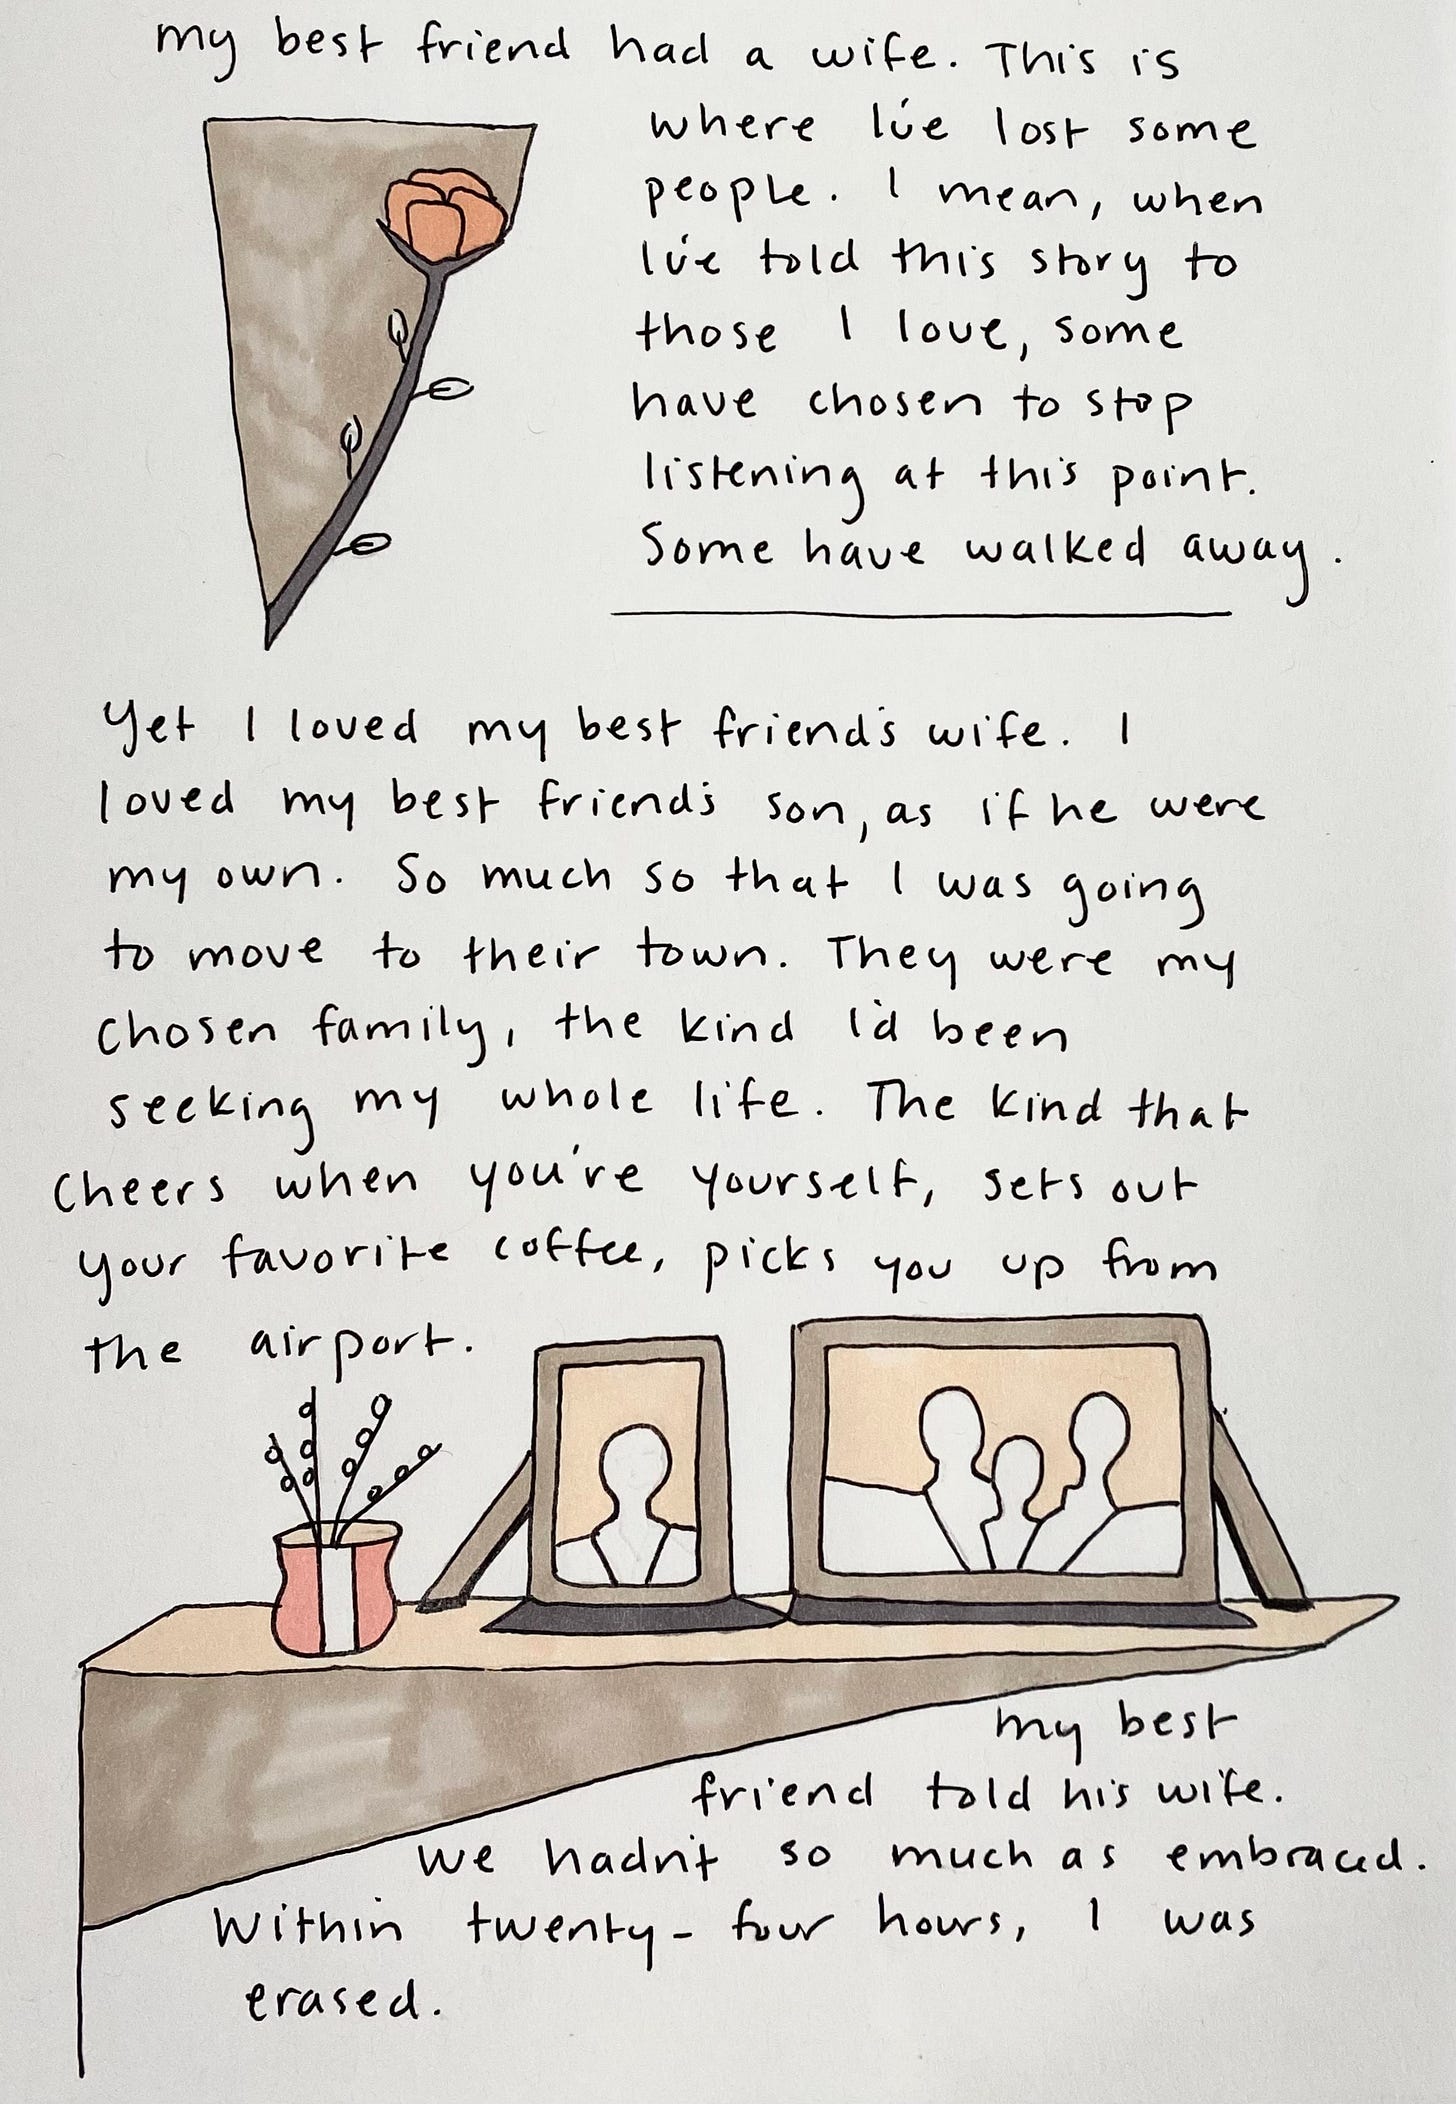 my best friend had a wife. This is
where I've lost some
people. I mean, when
I've told this story to
those I love, some
have chosen to stop
listening at this point.
Some have walked away.
Yet I loved my best friend's wife. I
loved my best friend's son, as if he were
my own. So much so that I was going
to move to their town. They were my
chosen family, the kind I'd been
seeking my whole life. The kind that
cheers when you're yourself, sets out
your favorite coffee, picks you up from
the airport.
my best
friend told his wife.
we hadn't so much as embraced.
Within twenty-four hours, I was
erased.